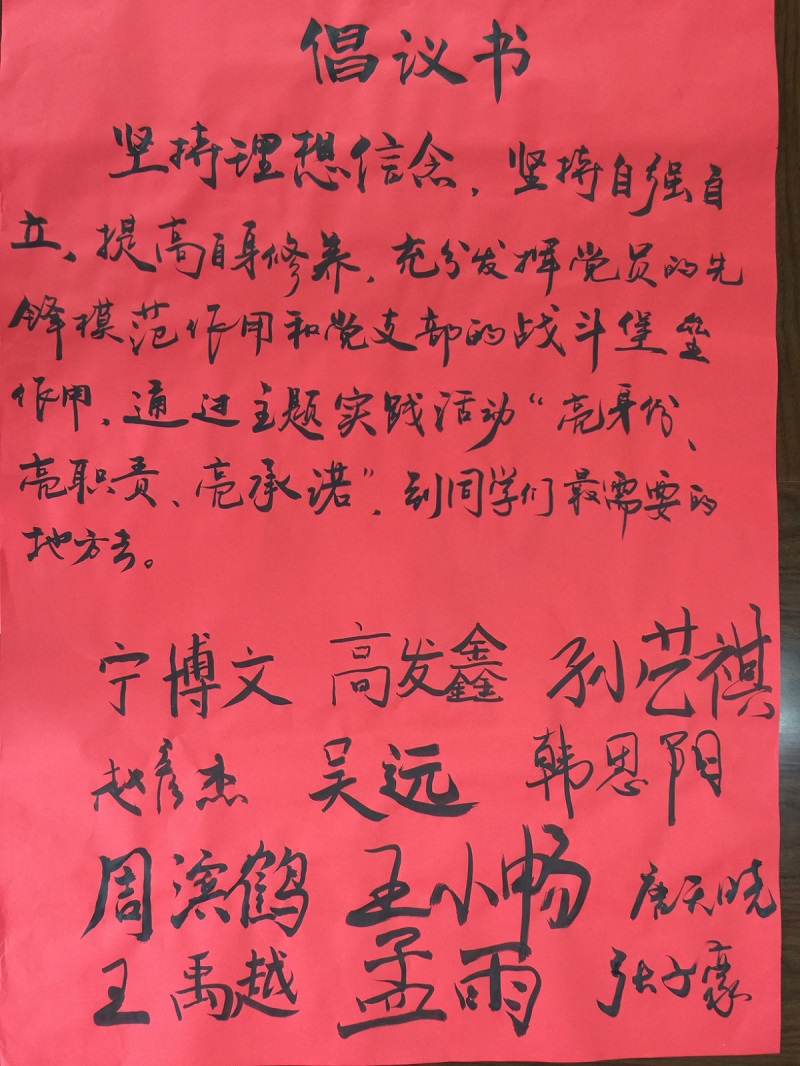 倡议书
坚持理想信念，坚持自强自
立、提高自身修养，充分发挥党员的先
锋模范作用和党支部的战斗堡垒
作用，通过主题实践活动“亮身份、
亮职责、亮承诺”，到同学们最需要的
地方去。
宁博文 高发鑫 孙艺祺
赵彦杰 吴远 韩恩阳
周滨鹤 王小畅 唐天晓
王禹越 孟雨 张子豪